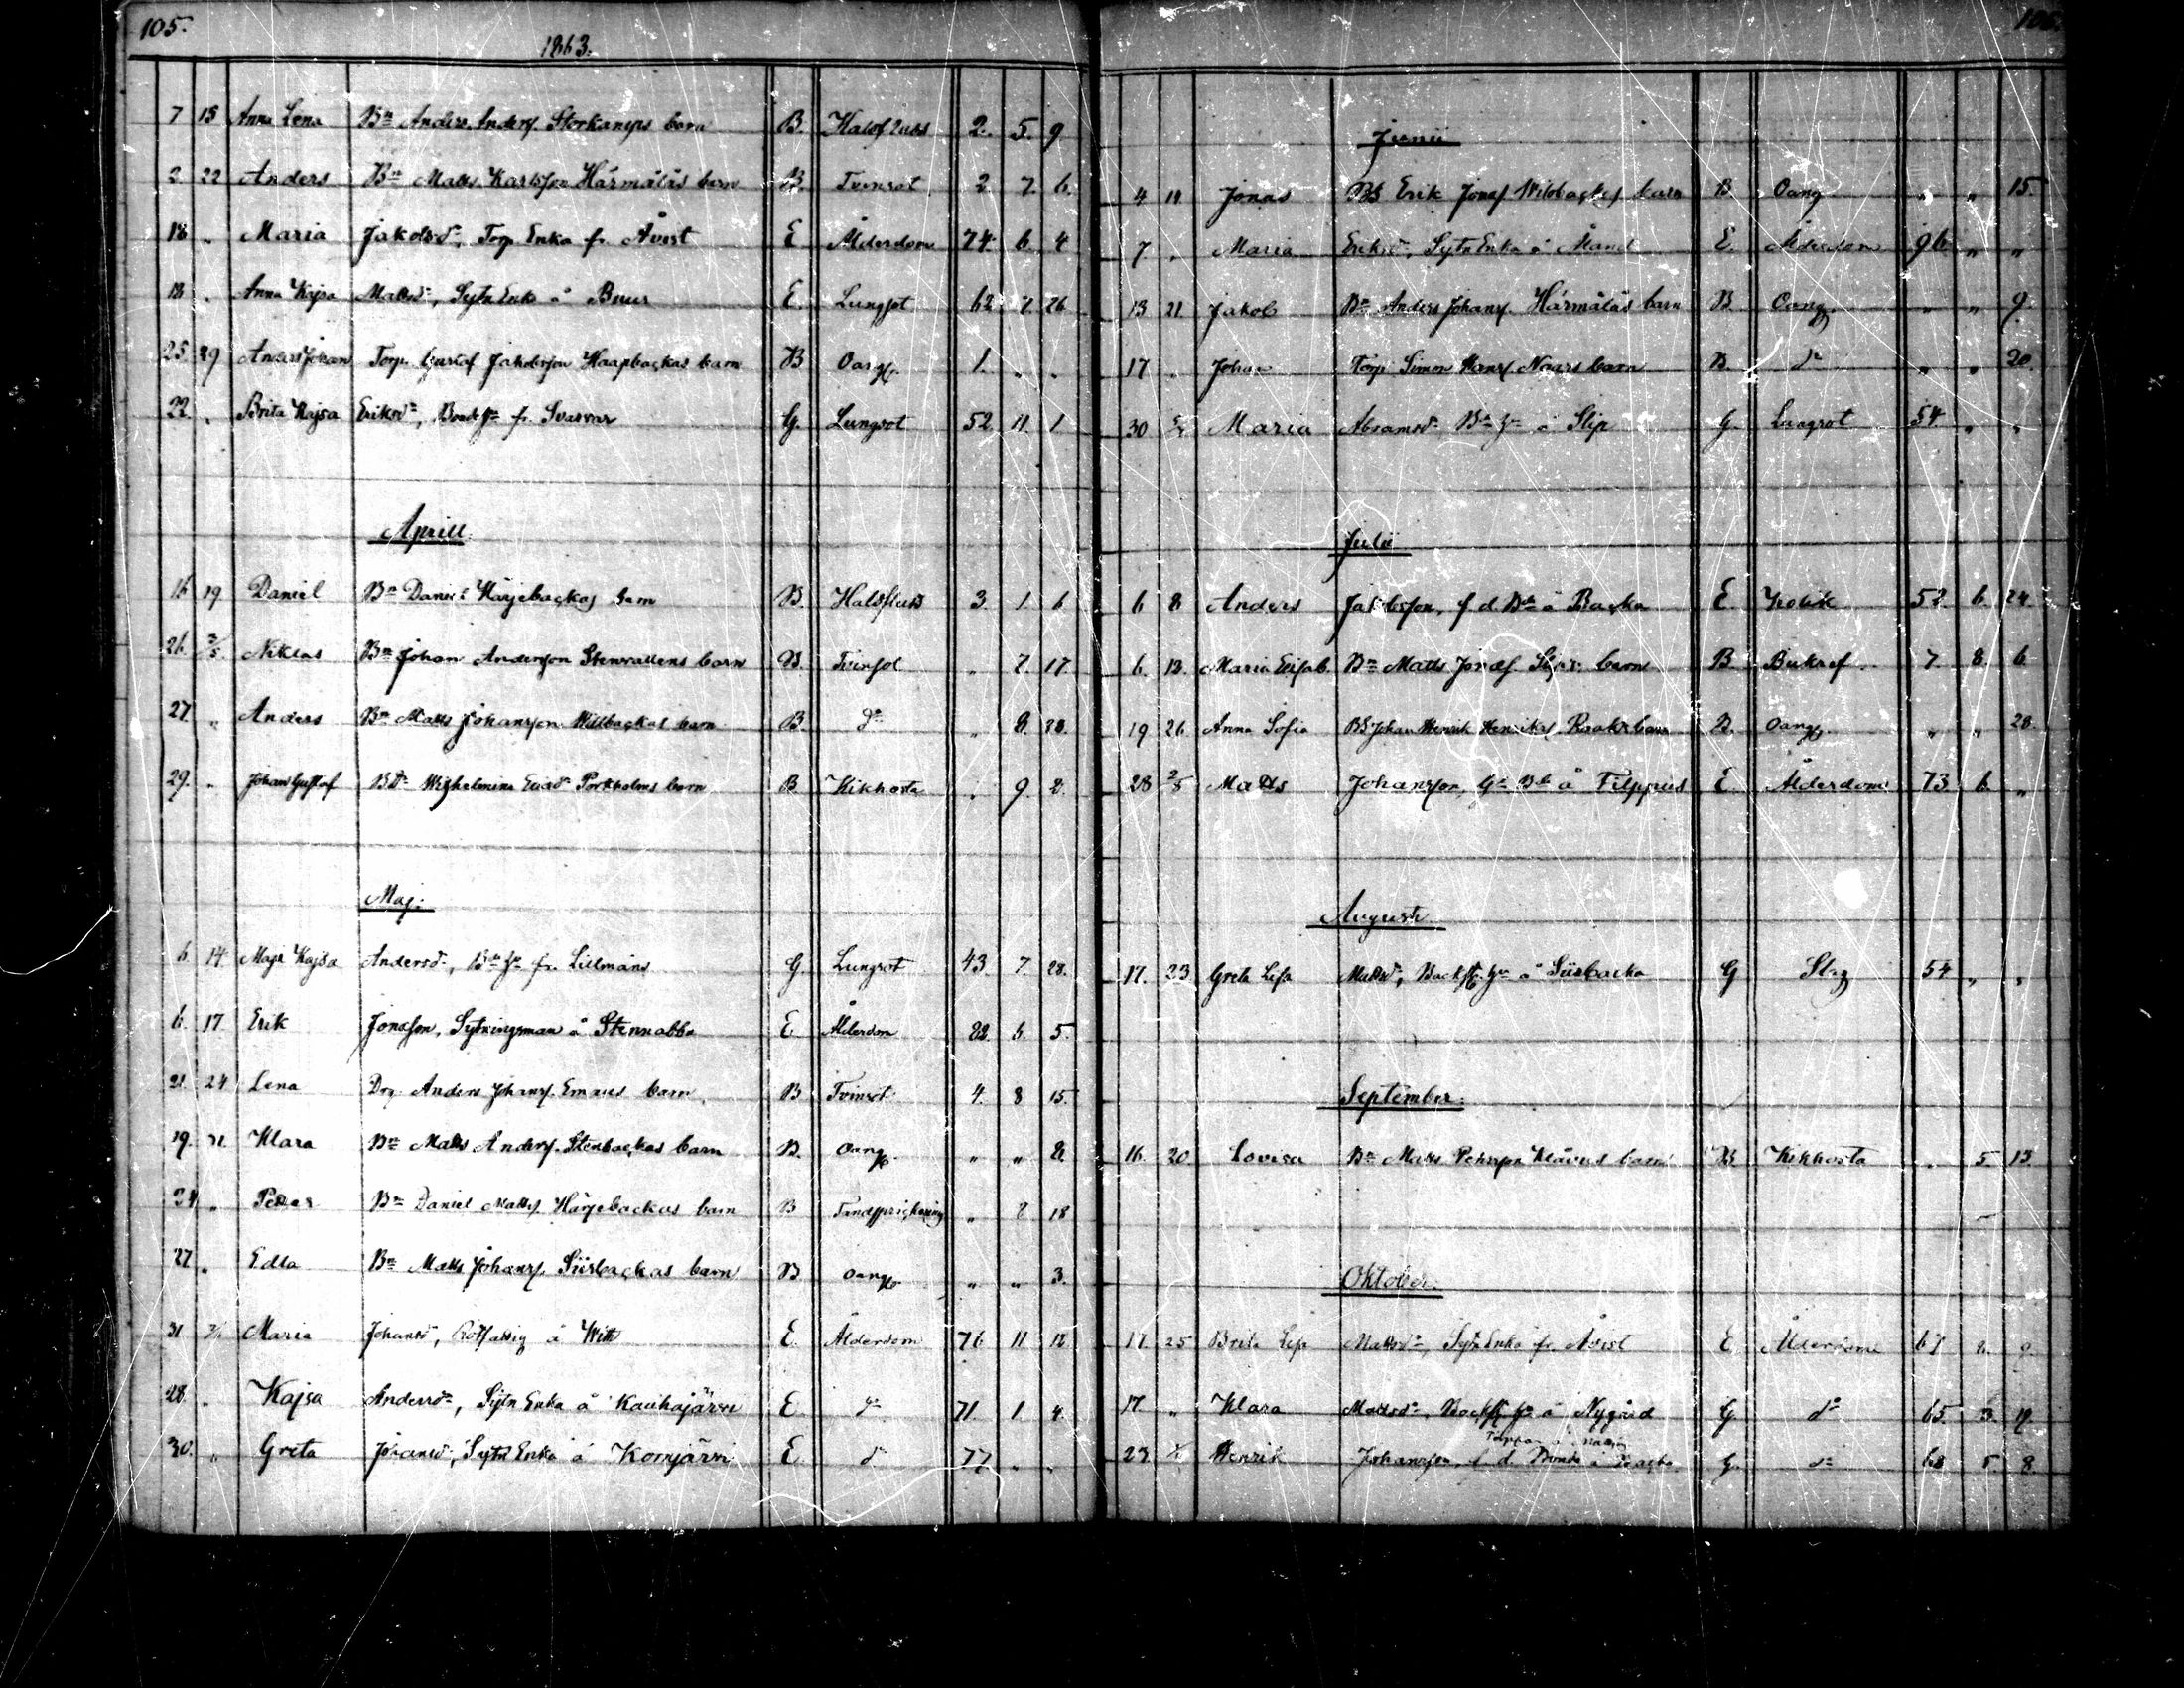 105.
1863.
7 15 Anna Lena Bn Anders Andersf. Storkamps barn B. Halsfluss 2. 5. 9
2 22 Anders Bn Matts Karlsson Härmäläs barn B. Tvinsot 2 7. 6.
18 " Maria Jakobsdr, Torp. Enka fr. Åvist E Ålderdom 74. 6. 4
18 " Anna Kajsa Mattsdr, Sytn Enka å Buur E. Lungsot 62 7. 26
25. 29 Anders Johan Torp. Gustaf Jakobsson Haapbackas barn B Oangf. 1. " "
22. " Brita Kajsa Eriksdr, fr. Svarvar G. Lungsot 52 11. 1
Aprill
16 19 Daniel Bn Daniel Härjebackas barn B. Halsfluss 3. 1 6
26. 3/5 Niklas Bn Johan Andersson Stenvallens barn B. Tvinsot " 7. 17
27 " Anders Bn Matts Johansson Willbackas barn B. do " 8.
29. " Johan Gustaf Wilhelmina Porkholms barn B. Kikhosta " 9. 2.
Maj.
6. 14 Maja Kajsa Andersdr, fr. Lillmåns G. Lungsot 43. 7. 28.
6. 17 Erik Jonasson, Sytningsman å Stennabba E. Ålderdom 82. 6. 5.
21 24 Lena Drg. Anders Johansf. Emaus barn B Tvinsot 4. 8 15.
19. 31 Klara Bn Matts Andersf. Stenbackas barn B. Oangf. " " 8.
24 " Petter Bn Daniel Mattsf. Härjebackas barn B " 7 18
27. " Edla Bn Matts Johansf. Siirbackas barn B Oangf. " " 3.
31 Maria Johansdr, å Witt E. Ålderdom 76 11 12.
28. " Kajsa Andersdr, Sytn Enka å Kauhajärvi E do 71. 1. 4.
30. " Greta Johansdr, Sytn Enka å Komjärvi E do 77 " "
106.
Junii
4 14 Jonas BS Erik Jonasf. barn B Oang " " 15.
7 " Maria Eriksdr, Sytn Enka å Åland E. Ålderdom 96 " "
13 21. Jakob Bn Anders Johansf. Härmäläs barn B. Oangf. " " 9.
17 " Johan Torp. Simon Hansf. Naars barn B. do " " 20.
30 Maria Abramsdr å Slip G. Lungsot 54 " "
Julii
6 8 Anders Jakobsson, f. d. Bde å Backa E. Kolik 52. 6. 24.
6. 12. Maria Lisab. Bn Matts Jonasf. barn B Bukref 7. 8. 6
19 26 Anna Sofia BS Johan Henrik Henriksf. barn B. Oangf " " 28.
28 2/8 Matts Johansson, å Filppus E. Ålderdom 73. 6. "
Augusti
17. 23 Greta Lisa Mattsdr, å Siirbacka G Slag 54 " "
September.
16. 20 Lovisa Bn Matts Pehrsson Klävus barn B Kikhosta " 5. 13.
Oktober.
17. 25 Brita Lisa Mattsdr, Sytn Enka fr. Åvist E Ålderdom 67 2. 9
17 " Klara Mattsdr, å Nygård G do 65. 3. 19.
23 Henrik Johansson, f. d. Bonde å G. do 68 5. 8.